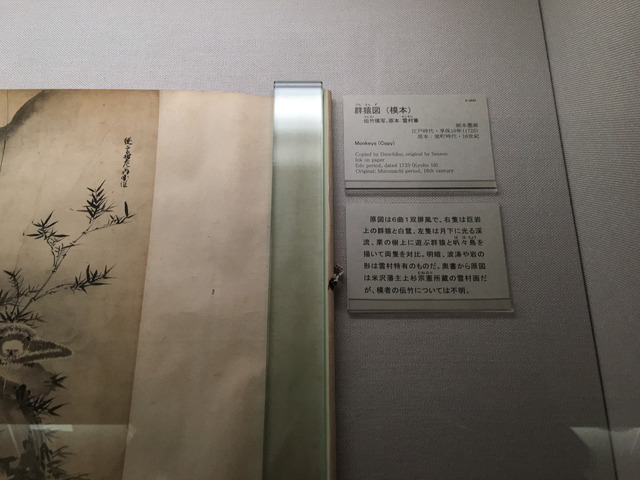 群猿図（模本）
伝竹模写、原本：雪村筆
紙本墨画
江戸時代・享保10年（1725）
原本：室町時代・16世紀
Monkeys (Copy)
Ink on paper
Edo period, dated 1725 (Kyoho 10)
Original: Muromachi period, 16th century
原図は6曲1双屏風で、右隻は巨岩
上の群猿と白鷺、左隻は月下に光る渓
流、栗の樹上に遊ぶ群猿と叭々鳥を
描いて両隻を対比。明暗、波濤や岩の
形は雪村特有のものだ。奥書から原図
は米沢藩主上杉宗憲所蔵の雪村画だ
が、模者の伝竹については不明。